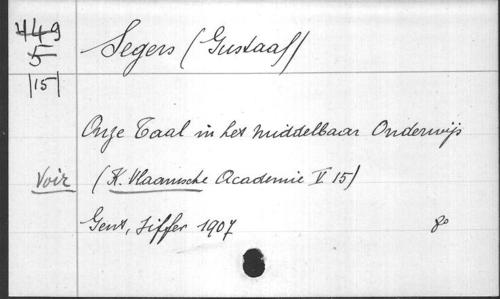 449
5
|15|
Segers (Gustaaf)
Onze Taal in het middelbaar Onderwijs
Voir (K. Vlaamsche Academie V 15)
Gent, Siffer 1907 8°